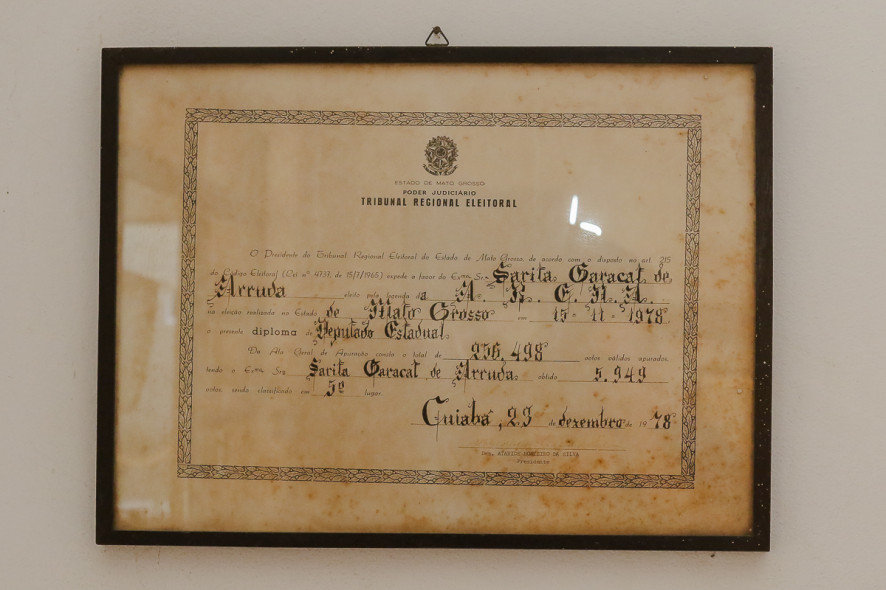 ESTADO DE MATO GROSSO
PODER JUDICIÁRIO
TRIBUNAL REGIONAL ELEITORAL
O Presidente do Tribunal Regional Eleitoral do Estado de Mato Grosso, de acordo com o disposto no art. 215
do Código Eleitoral (Lei nº 4737, de 15/7/1965) expede a favor do Exmo. Sr. Sarita Baracat de
Arruda eleito pela legenda da A. R. E. N. A.
na eleição realizada no Estado de Mato Grosso em 15 - 11 - 1978
o presente diploma de Deputado Estadual.
Da Ata Geral de Apuração consta o total de 256.498 votos válidos apurados,
tendo o Exmo. Sr. Sarita Baracat de Arruda obtido 5.949
votos, sendo classificado em 5º lugar.
Cuiabá, 23 de dezembro de 1978
PRESIDENTE